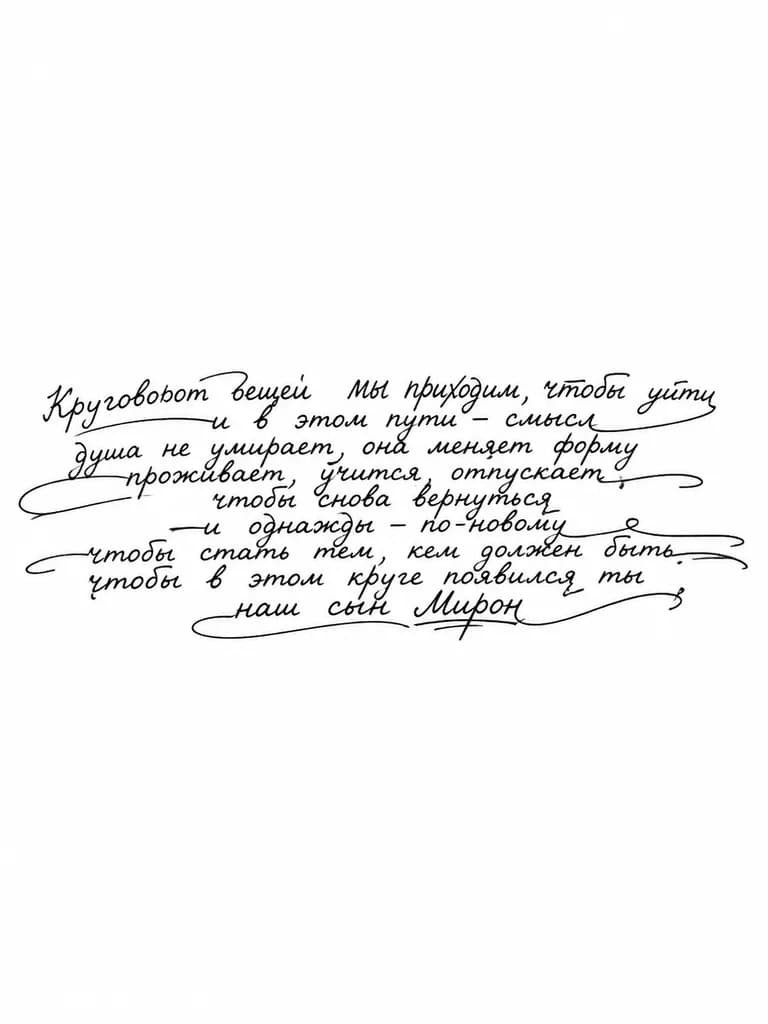 Круговорот вещей мы приходим, чтобы уйти
и в этом пути – смысл
душа не умирает, она меняет форму
проживает, учится, отпускает,
чтобы снова вернуться
и однажды – по-новому
чтобы стать тем, кем должен быть.
чтобы в этом круге появился ты
наш сын Мирон